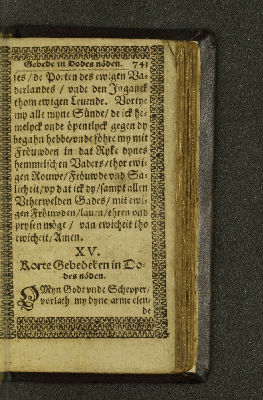 Gebede in Dodes nöden. 741
ses / de Porten des ewigen Va-
derlandes / vnde den Inganck
thom ewigen Leuende. Vorgyff
my alle myne Sünde / de ick he-
melyck vnde öpentlyck gegen dy
begahn hebbe / vnde föhre my mit
Fröuwden in dat Ryke dynes
hemmelschen Vaders / thor ewi-
gen Rouwe / Fröwde vnd Sa-
licheit / vp dat ick dy / sampt allen
Vtherwelden Gades / mit ewi-
gen Fröuwden / lauen / ehren vnd
prysen möge / van ewicheit tho
ewicheit / Amen.
XV.
Korte Gebedeken in Do-
des nöden.
O Myn Godt vnde Schepper /
vorlath my dyne arme elen-
de